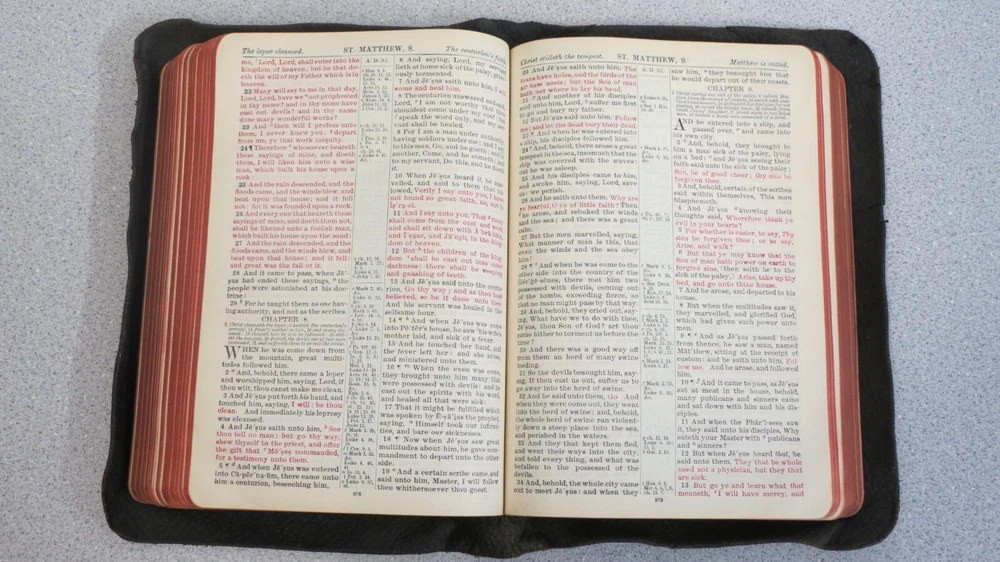 The leper cleansed. ST. MATTHEW, 8. The centurion's faith
me, Lord, Lord, shall enter into the
kingdom of heaven; but he that do-
eth the will of my Father which is in
heaven.
22 Many will say to me in that day,
Lord, Lord, have we not prophesied
in thy name? and in thy name have
cast out devils? and in thy name
done many wonderful works?
23 And then will I profess unto
them, I never knew you: depart
from me, ye that work iniquity.
24 ¶ Therefore whosoever heareth
these sayings of mine, and doeth
them, I will liken him unto a wise
man, which built his house upon a
rock:
25 And the rain descended, and the
floods came, and the winds blew, and
beat upon that house; and it fell
not: for it was founded upon a rock.
26 And every one that heareth these
sayings of mine, and doeth them not,
shall be likened unto a foolish man,
which built his house upon the sand:
27 And the rain descended, and the
floods came, and the winds blew, and
beat upon that house; and it fell:
and great was the fall of it.
28 And it came to pass, when Jē'-
ṣus had ended these sayings, the
people were astonished at his doc-
trine:
29 For he taught them as one hav-
ing authority, and not as the scribes.
CHAPTER 8.
WHEN he was come down from
the mountain, great multi-
tudes followed him.
2 And, behold, there came a leper
and worshipped him, saying, Lord, if
thou wilt, thou canst make me clean.
3 And Jē'ṣus put forth his hand, and
touched him, saying, I will; be thou
clean. And immediately his leprosy
was cleansed.
4 And Jē'ṣus saith unto him, See
thou tell no man; but go thy way,
shew thyself to the priest, and offer
the gift that Mō'ṣeṣ commanded,
for a testimony unto them.
5 ¶ And when Jē'ṣus was entered
into Cā-pẽr'na-ŭm, there came unto
him a centurion, beseeching him,
6 And saying, Lord, my servant
lieth at home sick of the palsy, griev-
ously tormented.
7 And Jē'ṣus saith unto him, I will
come and heal him.
8 The centurion answered and said,
Lord, I am not worthy that thou
shouldest come under my roof: but
speak the word only, and my ser-
vant shall be healed.
9 For I am a man under authority,
having soldiers under me: and I say
to this man, Go, and he goeth; and to
another, Come, and he cometh; and
to my servant, Do this, and he doeth
it.
10 When Jē'ṣus heard it, he mar-
velled, and said to them that fol-
lowed, Verily I say unto you, I have
not found so great faith, no, not in
Iṣ'ra-el.
11 And I say unto you, That many
shall come from the east and west,
and shall sit down with Ā'bră-hăm,
and I'ṣaac, and Jā'cob, in the king-
dom of heaven.
12 But the children of the king-
dom shall be cast out into outer
darkness: there shall be weeping
and gnashing of teeth.
13 And Jē'ṣus said unto the centu-
rion, Go thy way; and as thou hast
believed, so be it done unto thee.
And his servant was healed in the
selfsame hour.
14 ¶ And when Jē'ṣus was come
into Pē'tẽr's house, he saw his wife's
mother laid, and sick of a fever.
15 And he touched her hand, and
the fever left her: and she arose,
and ministered unto them.
16 ¶ When the even was come,
they brought unto him many that
were possessed with devils: and he
cast out the spirits with his word,
and healed all that were sick:
17 That it might be fulfilled which
was spoken by Ē-ṣā'jas the prophet,
saying, Himself took our infirmi-
ties, and bare our sicknesses.
18 ¶ Now when Jē'ṣus saw great
multitudes about him, he gave com-
mandment to depart unto the other
side.
19 And a certain scribe came, and
said unto him, Master, I will follow
thee whithersoever thou goest.
978
Christ stilleth the tempest. ST. MATTHEW, 9. Matthew is called.
20 And Jē'ṣus saith unto him, The
foxes have holes, and the birds of the
air have nests; but the Son of man
hath not where to lay his head.
21 And another of his disciples
said unto him, Lord, suffer me first
to go and bury my father.
22 But Jē'ṣus said unto him, Follow
me; and let the dead bury their dead.
23 ¶ And when he was entered into
a ship, his disciples followed him.
24 And, behold, there arose a great
tempest in the sea, insomuch that the
ship was covered with the waves:
but he was asleep.
25 And his disciples came to him,
and awoke him, saying, Lord, save
us: we perish.
26 And he saith unto them, Why are
ye fearful, O ye of little faith? Then
he arose, and rebuked the winds
and the sea; and there was a great
calm.
27 But the men marvelled, saying,
What manner of man is this, that
even the winds and the sea obey
him!
28 ¶ And when he was come to the
other side into the country of the
Gẽr'gĕ-sēneṣ, there met him two
possessed with devils, coming out
of the tombs, exceeding fierce, so
that no man might pass by that way.
29 And, behold, they cried out, say-
ing, What have we to do with thee,
Jē'ṣus, thou Son of God? art thou
come hither to torment us before the
time?
30 And there was a good way off
from them an herd of many swine
feeding.
31 So the devils besought him, say-
ing, If thou cast us out, suffer us to
go away into the herd of swine.
32 And he said unto them, Go. And
when they were come out, they went
into the herd of swine: and, behold,
the whole herd of swine ran violent-
ly down a steep place into the sea,
and perished in the waters.
33 And they that kept them fled,
and went their ways into the city,
and told every thing, and what was
befallen to the possessed of the
devils.
34 And, behold, the whole city came
out to meet Jē'ṣus: and when they
saw him, they besought him that he
would depart out of their coasts.
CHAPTER 9.
AND he entered into a ship, and
passed over, and came into
his own city.
2 And, behold, they brought to
him a man sick of the palsy, lying
on a bed: and Jē'ṣus seeing their
faith said unto the sick of the palsy;
Son, be of good cheer; thy sins be
forgiven thee.
3 And, behold, certain of the scribes
said within themselves, This man
blasphemeth.
4 And Jē'ṣus knowing their
thoughts said, Wherefore think ye
evil in your hearts?
5 For whether is easier, to say, Thy
sins be forgiven thee; or to say,
Arise, and walk?
6 But that ye may know that the
Son of man hath power on earth to
forgive sins, (then saith he to the
sick of the palsy,) Arise, take up thy
bed, and go unto thine house.
7 And he arose, and departed to his
house.
8 But when the multitudes saw it,
they marvelled, and glorified God,
which had given such power unto
men.
9 ¶ And as Jē'ṣus passed forth
from thence, he saw a man, named
Măt'thew, sitting at the receipt of
custom: and he saith unto him, Fol-
low me. And he arose, and followed
him.
10 ¶ And it came to pass, as Jē'ṣus
sat at meat in the house, behold,
many publicans and sinners came
and sat down with him and his dis-
ciples.
11 And when the Phăr'i-sees saw
it, they said unto his disciples, Why
eateth your Master with publicans
and sinners?
12 But when Jē'ṣus heard that, he
said unto them, They that be whole
need not a physician, but they that
are sick.
13 But go ye and learn what that
meaneth, I will have mercy, and
979